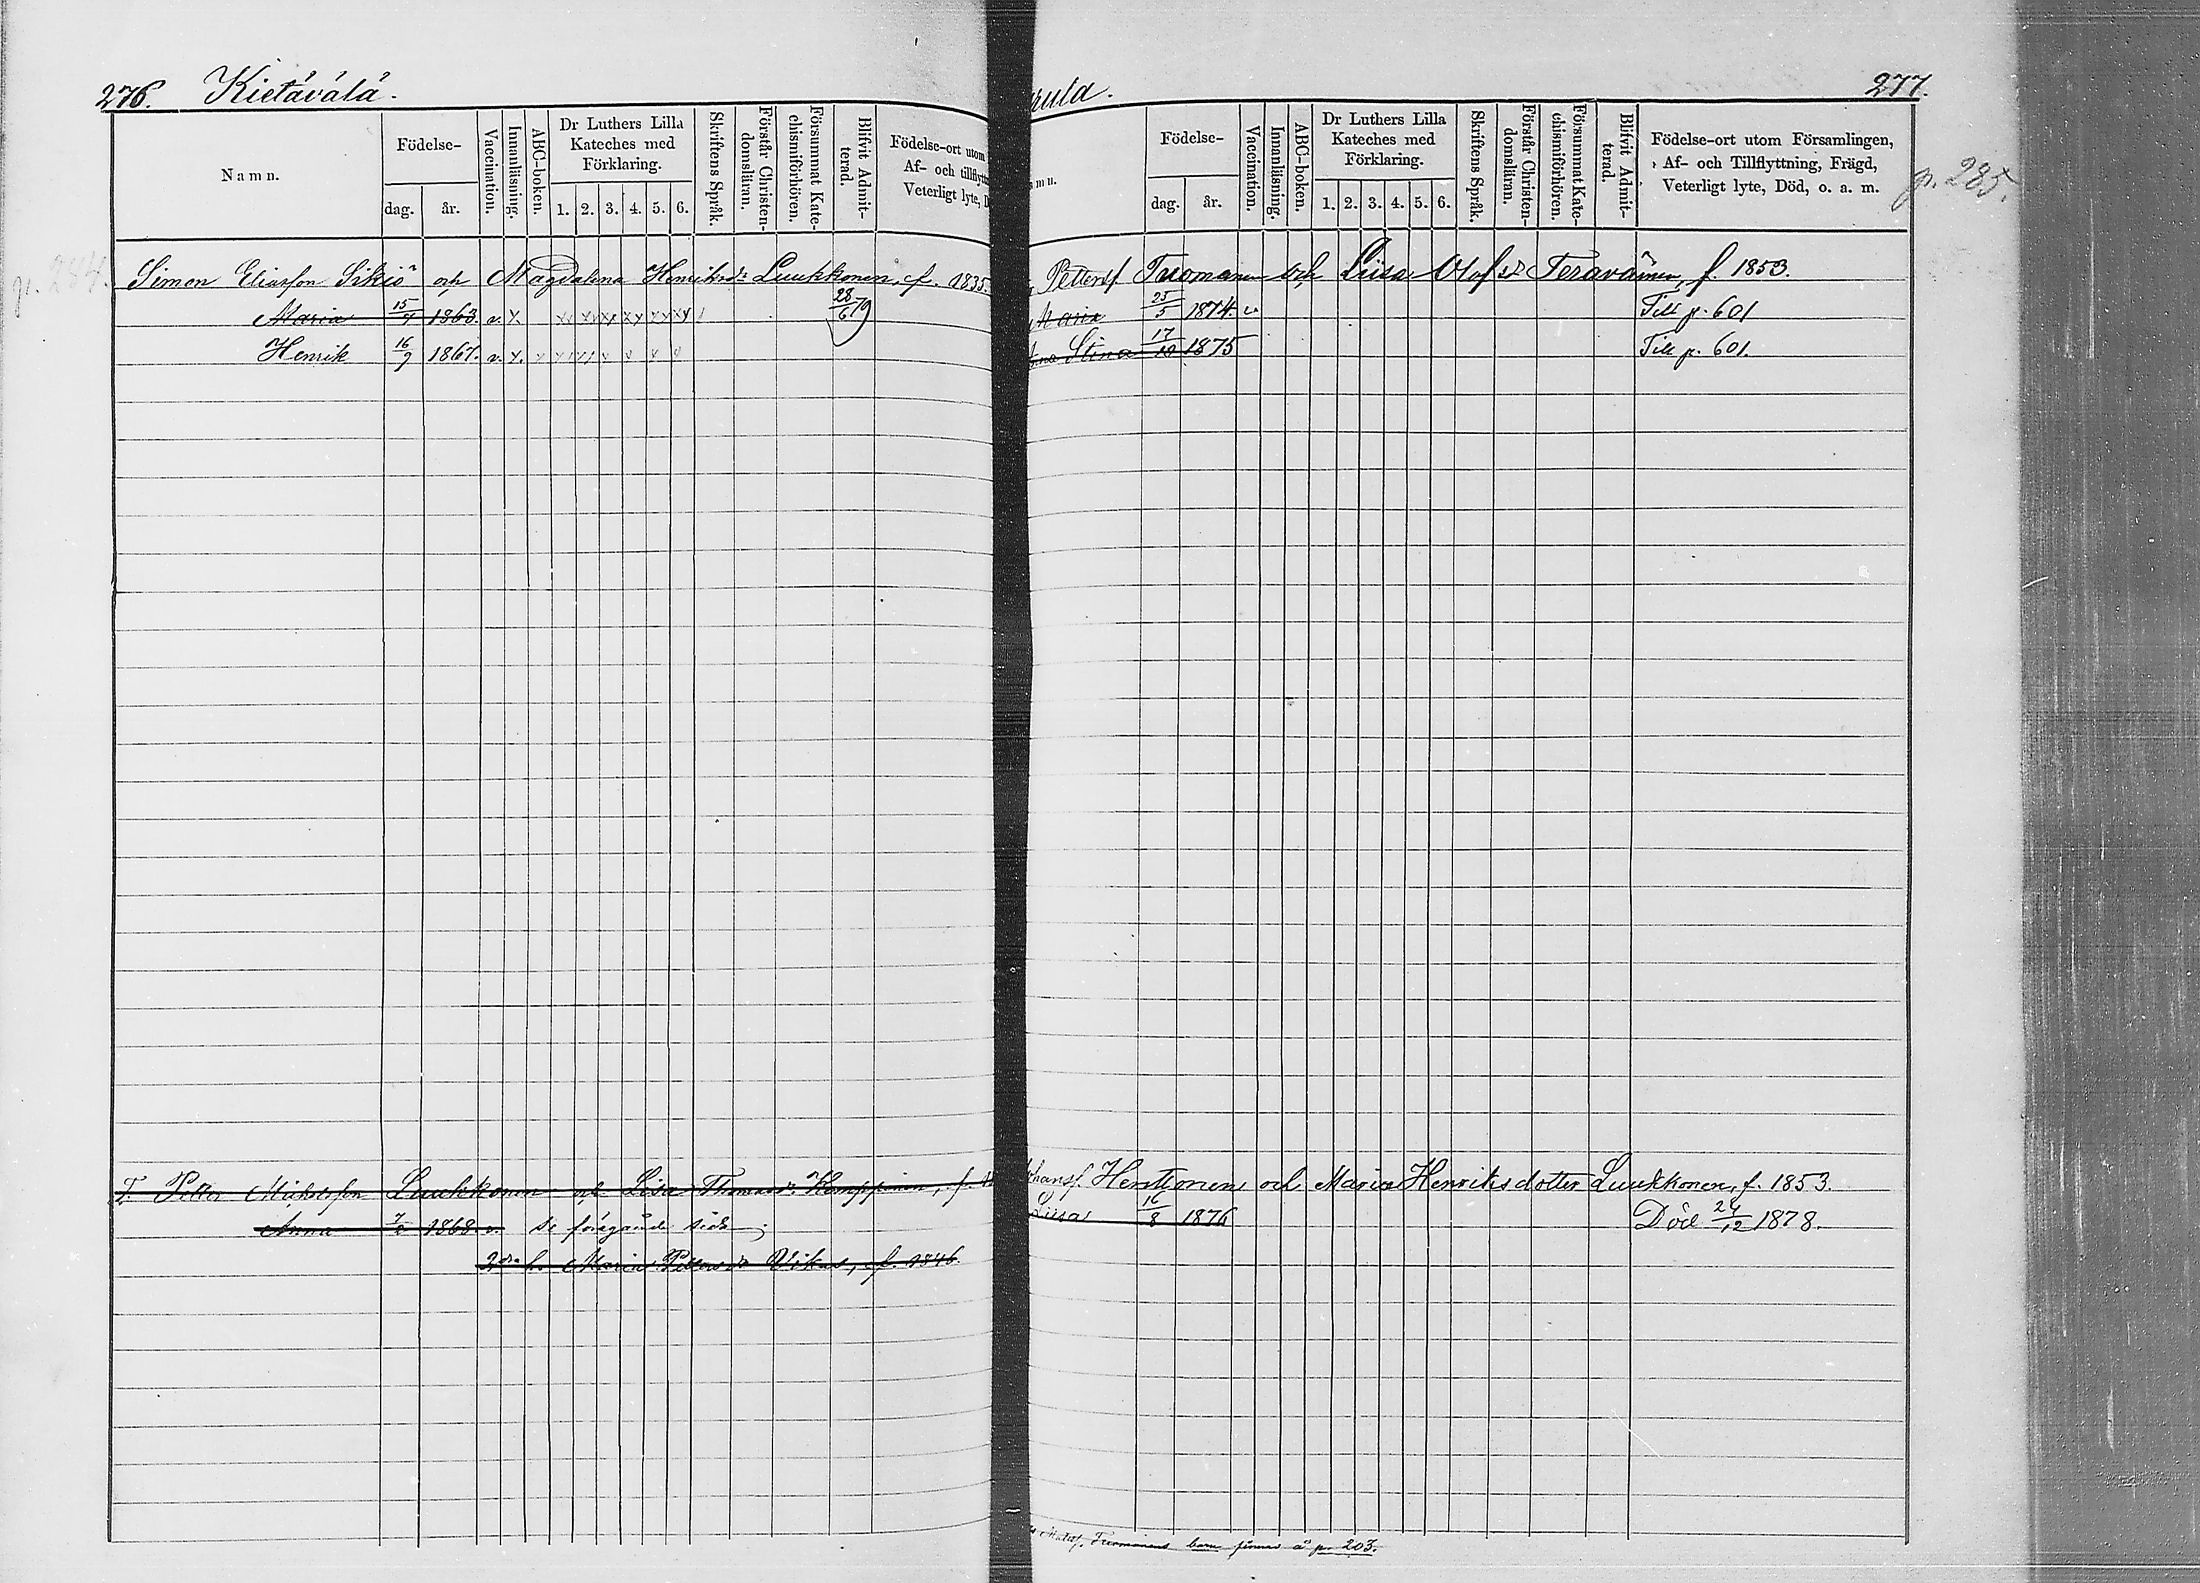 276. Kietävälä.
Namn.
Födelse-
dag.
år.
Vaccination.
Innanläsning.
ABC-boken.
Dr Luthers Lilla
Kateches med
Förklaring.
1. 2. 3. 4. 5. 6.
Skriftens Språk.
Förstår Christen-
domsläran.
Försummat Kate-
chismiförhören.
Blifvit Admit-
terad.
Födelse-ort utom
Af- och tillflytt
Veterligt lyte, D
p. 284.
Simon Eliasson Sikiö och Magdalena Henriksdr Luukkonen, f. 1835.
Maria 15/4 1863. v. x x x x x x x 28/6 79
Henrik 16/9 1867. v. x. x x x x x x x
T. Petter Michelsson Luukkonen och Lisa Thomasdr Kamppinen, f.
Anna 7/2 1868 v. se föregående sida
2dra h. Maria Pettersdr Vikas, f. 1846.
rula. 277.
mn.
Födelse-
dag.
år.
Vaccination.
Innanläsning.
ABC-boken.
Dr Luthers Lilla
Kateches med
Förklaring.
1. 2. 3. 4. 5. 6.
Skriftens Språk.
Förstår Christen-
domsläran.
Försummat Kate-
chismiförhören.
Blifvit Admit-
terad.
Födelse-ort utom Församlingen,
Af- och Tillflyttning, Frägd,
Veterligt lyte, Död, o. a. m.
p. 285.
Pettersf. Tuomanen och Liisa Olofsdr Teraväinen, f. 1853.
Maria 25/5 1874. v. Till p. 601
Stina 17/10 1875 Till p. 601.
hansf. Henttonen och Maria Henriksdotter Luukkonen, f. 1853.
Liisa 16/8 1876 Död 24/12 1878.
Matsf. Tuomanens barn finnas å p. 203.